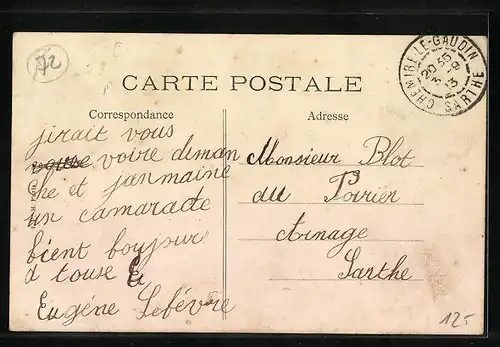 72
CHEMIRÉ-LE-GAUDIN
20 35
9
13
SARTHE
CARTE POSTALE
Correspondance
jirait vous
voire diman
che et janmaine
un camarade
bient boujour
a touse
Eugéne Lefévre
Adresse
Monsieur Blot
du Poirier
Arnage
Sarthe
125